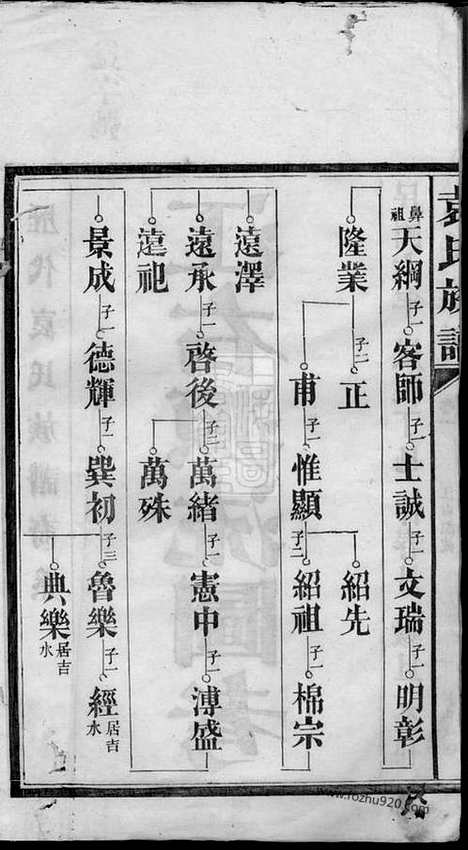 袁氏族譜
鼻祖天綱子一客師子一士誠子一文瑞子一明彰
隆業子二正
紹先
甫
惟顯子二紹祖子一棉宗
遠澤
遠承子一啓後子二萬緒子一憲中子一溥盛
遠祀
萬殊
景成子一德輝子一巽初子三魯樂子一經居吉水
典樂居吉水
www.rozhu920.com